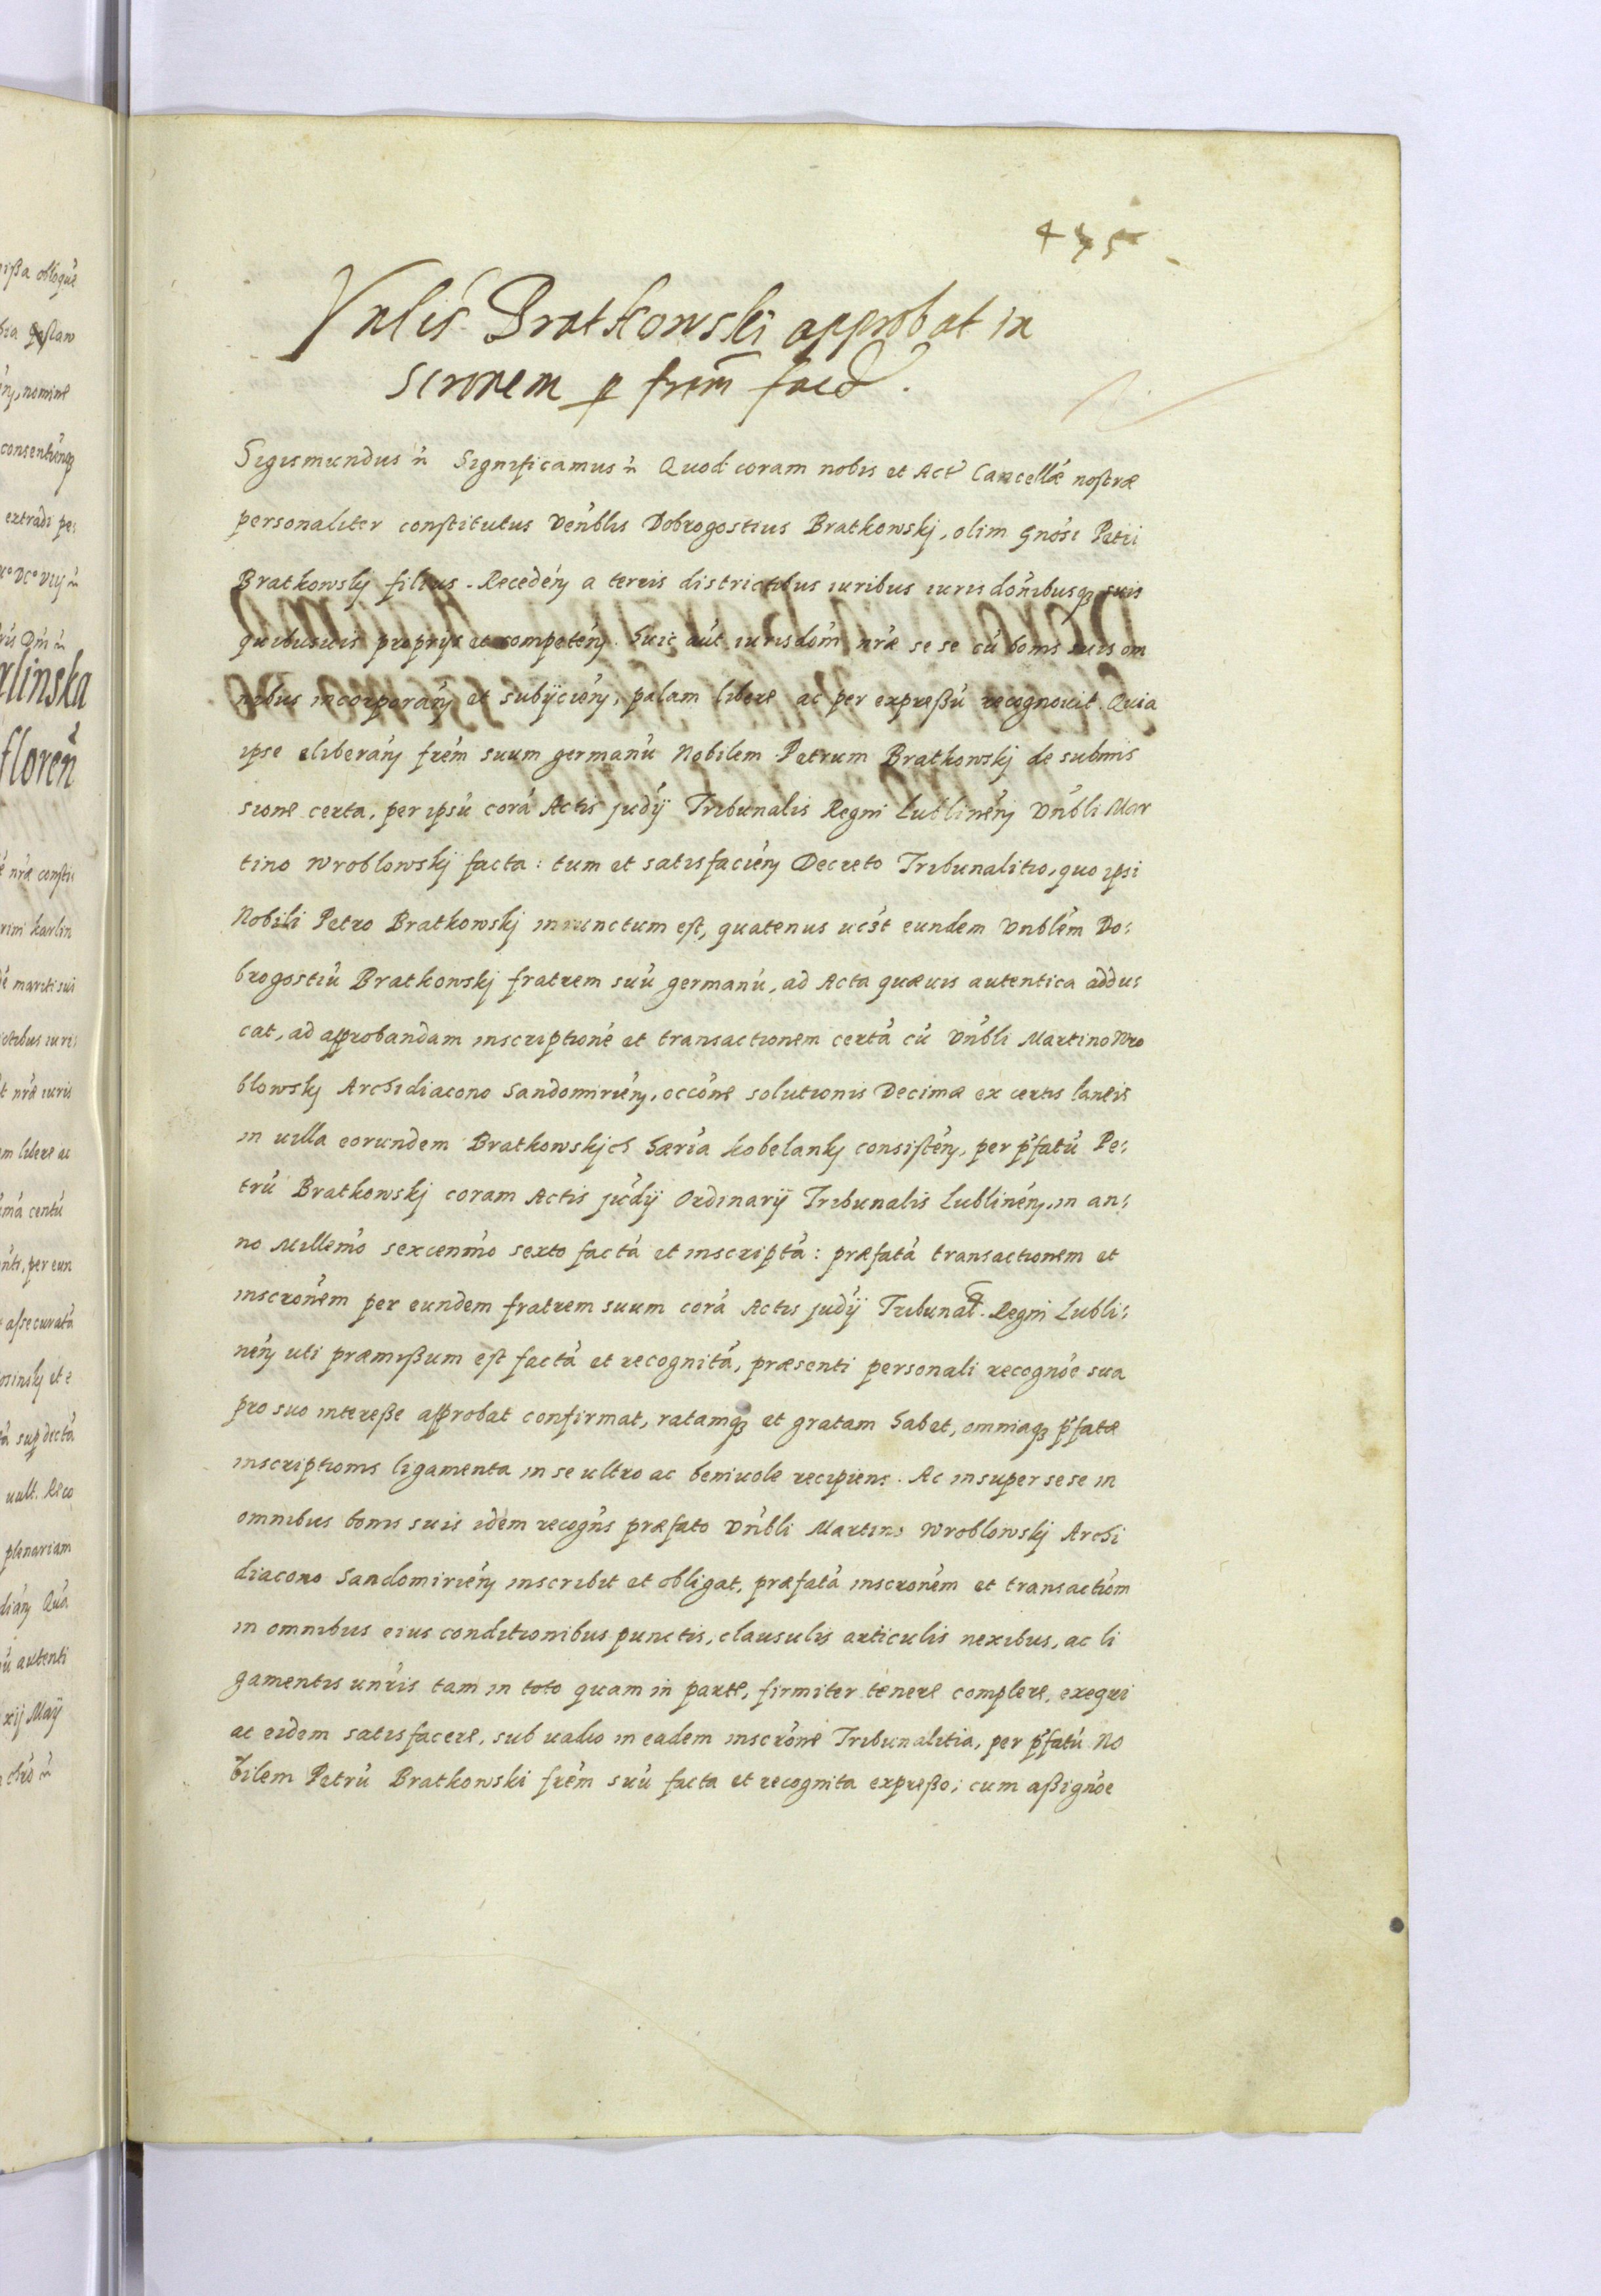 475
Vnlis Bratkowski approbat in
scronem p frem fact
Sigismundus ñ Significamus ñ Quod coram nobis et Act Cancellæ nostræ
personaliter constitutus Venblis Dobrogostius Bratkowskj, olim Gnosi Petri
Bratkowskj filius. Receden a terris districtibus iuribus iurisdonibusq suis
quibusuis proprys et competen. Huic aut iurisdom nræ se se cu bonis suis om
nibus incorporan et subÿcien, palam libere ac per expreßu recognouit. Quia
ipse eliberan frem suum germanu Nobilem Petrum Bratkowskj de submis
sione certa, per ipsu cora Actis judÿ Tribunalis Regni Lublinen Vnbli Mar
tino Wroblowskj facta: tum et satisfacien Decreto Tribunalitio, quo ipsi
Nobili Petro Bratkowskj iniunctum est, quatenus eundem Vnblem Do:
brogostiu Bratkowskj fratrem suu germanu, ad Acta quæuis autentica addu:
cat, ad approbandam inscriptione et transactionem certa cu Vnbli Martino Wro
blowskj Archidiacono Sandomirien, occone solutionis Decimæ ex certis laneis
in uilla eorundem Bratkowskich Hæria Kobelankj consisten, per pfatu Pe:
tru Bratkowskj coram Actis judÿ Ordinarÿ Tribunalis Lublinen, in an:
no Millemo sexcenmo sexto facta et inscripta: præfata transactionem et
inscronem per eundem fratrem suum cora Actis judÿ Tribunal. Regni Lubli:
nen uti præmißum est facta et recognita, præsenti personali recognoe sua
pro suo intereße approbat confirmat, ratamq et gratam habet, omniaq pfatæ
inscriptionis ligamenta in se ultro ac beniuole recipiens. Ac insuper sese in
omnibus bonis suis idem recogns præfato Vnbli Martino Wroblowskj Archi
diacono Sandomirien inscribit et obligat, præfata inscronem et transactiom
in omnibus eius conditionibus punctis, clausulis articulis nexibus, ac li
gamentis unris tam in toto quam in parte, firmiter tenere complere, exequi
ac eidem satisfacere, sub uadio in eadem inscrone Tribunalitia, per pfatu No
bilem Petru Bratkowski frem suu facta et recognita expreßo; cum aßignoe